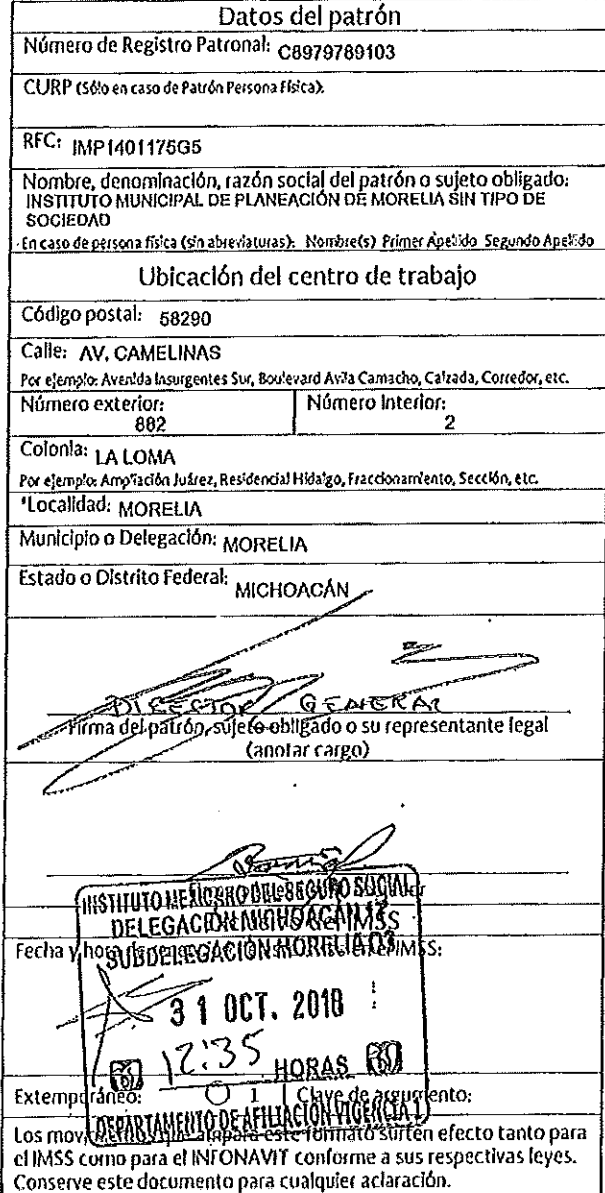 Datos del patrón
Número de Registro Patronal: C8979789103
CURP (Sólo en caso de Patrón Persona Física):
RFC: IMP1401175G5
Nombre, denominación, razón social del patrón o sujeto obligado:
INSTITUTO MUNICIPAL DE PLANEACIÓN DE MORELIA SIN TIPO DE
SOCIEDAD
En caso de persona física (sin abreviaturas): Nombre(s) Primer Apellido Segundo Apellido
Ubicación del centro de trabajo
Código postal: 58290
Calle: AV. CAMELINAS
Por ejemplo: Avenida Insurgentes Sur, Boulevard Avila Camacho, Calzada, Corredor, etc.
Número exterior: Número Interior:
882 2
Colonia: LA LOMA
Por ejemplo: Ampliación Juárez, Residencial Hidalgo, Fraccionamiento, Sección, etc.
*Localidad: MORELIA
Municipio o Delegación: MORELIA
Estado o Distrito Federal: MICHOACÁN
DIRECTOR GENERAL
Firma del patrón, sujeto obligado o su representante legal
(anotar cargo)
INSTITUTO MEXICANO DEL SEGURO SOCIAL
DELEGACIÓN MICHOACÁN
del IMSS
SUBDELEGACIÓN MORELIA 03
Fecha y hora de IMSS:
31 OCT. 2018
12:35 HORAS
Extemporáneo: 1 Clave de argumento:
DEPARTAMENTO DE AFILIACIÓN VIGENCIA 1
Los movimientos que ampara este formato surten efecto tanto para
el IMSS como para el INFONAVIT conforme a sus respectivas leyes.
Conserve este documento para cualquier aclaración.